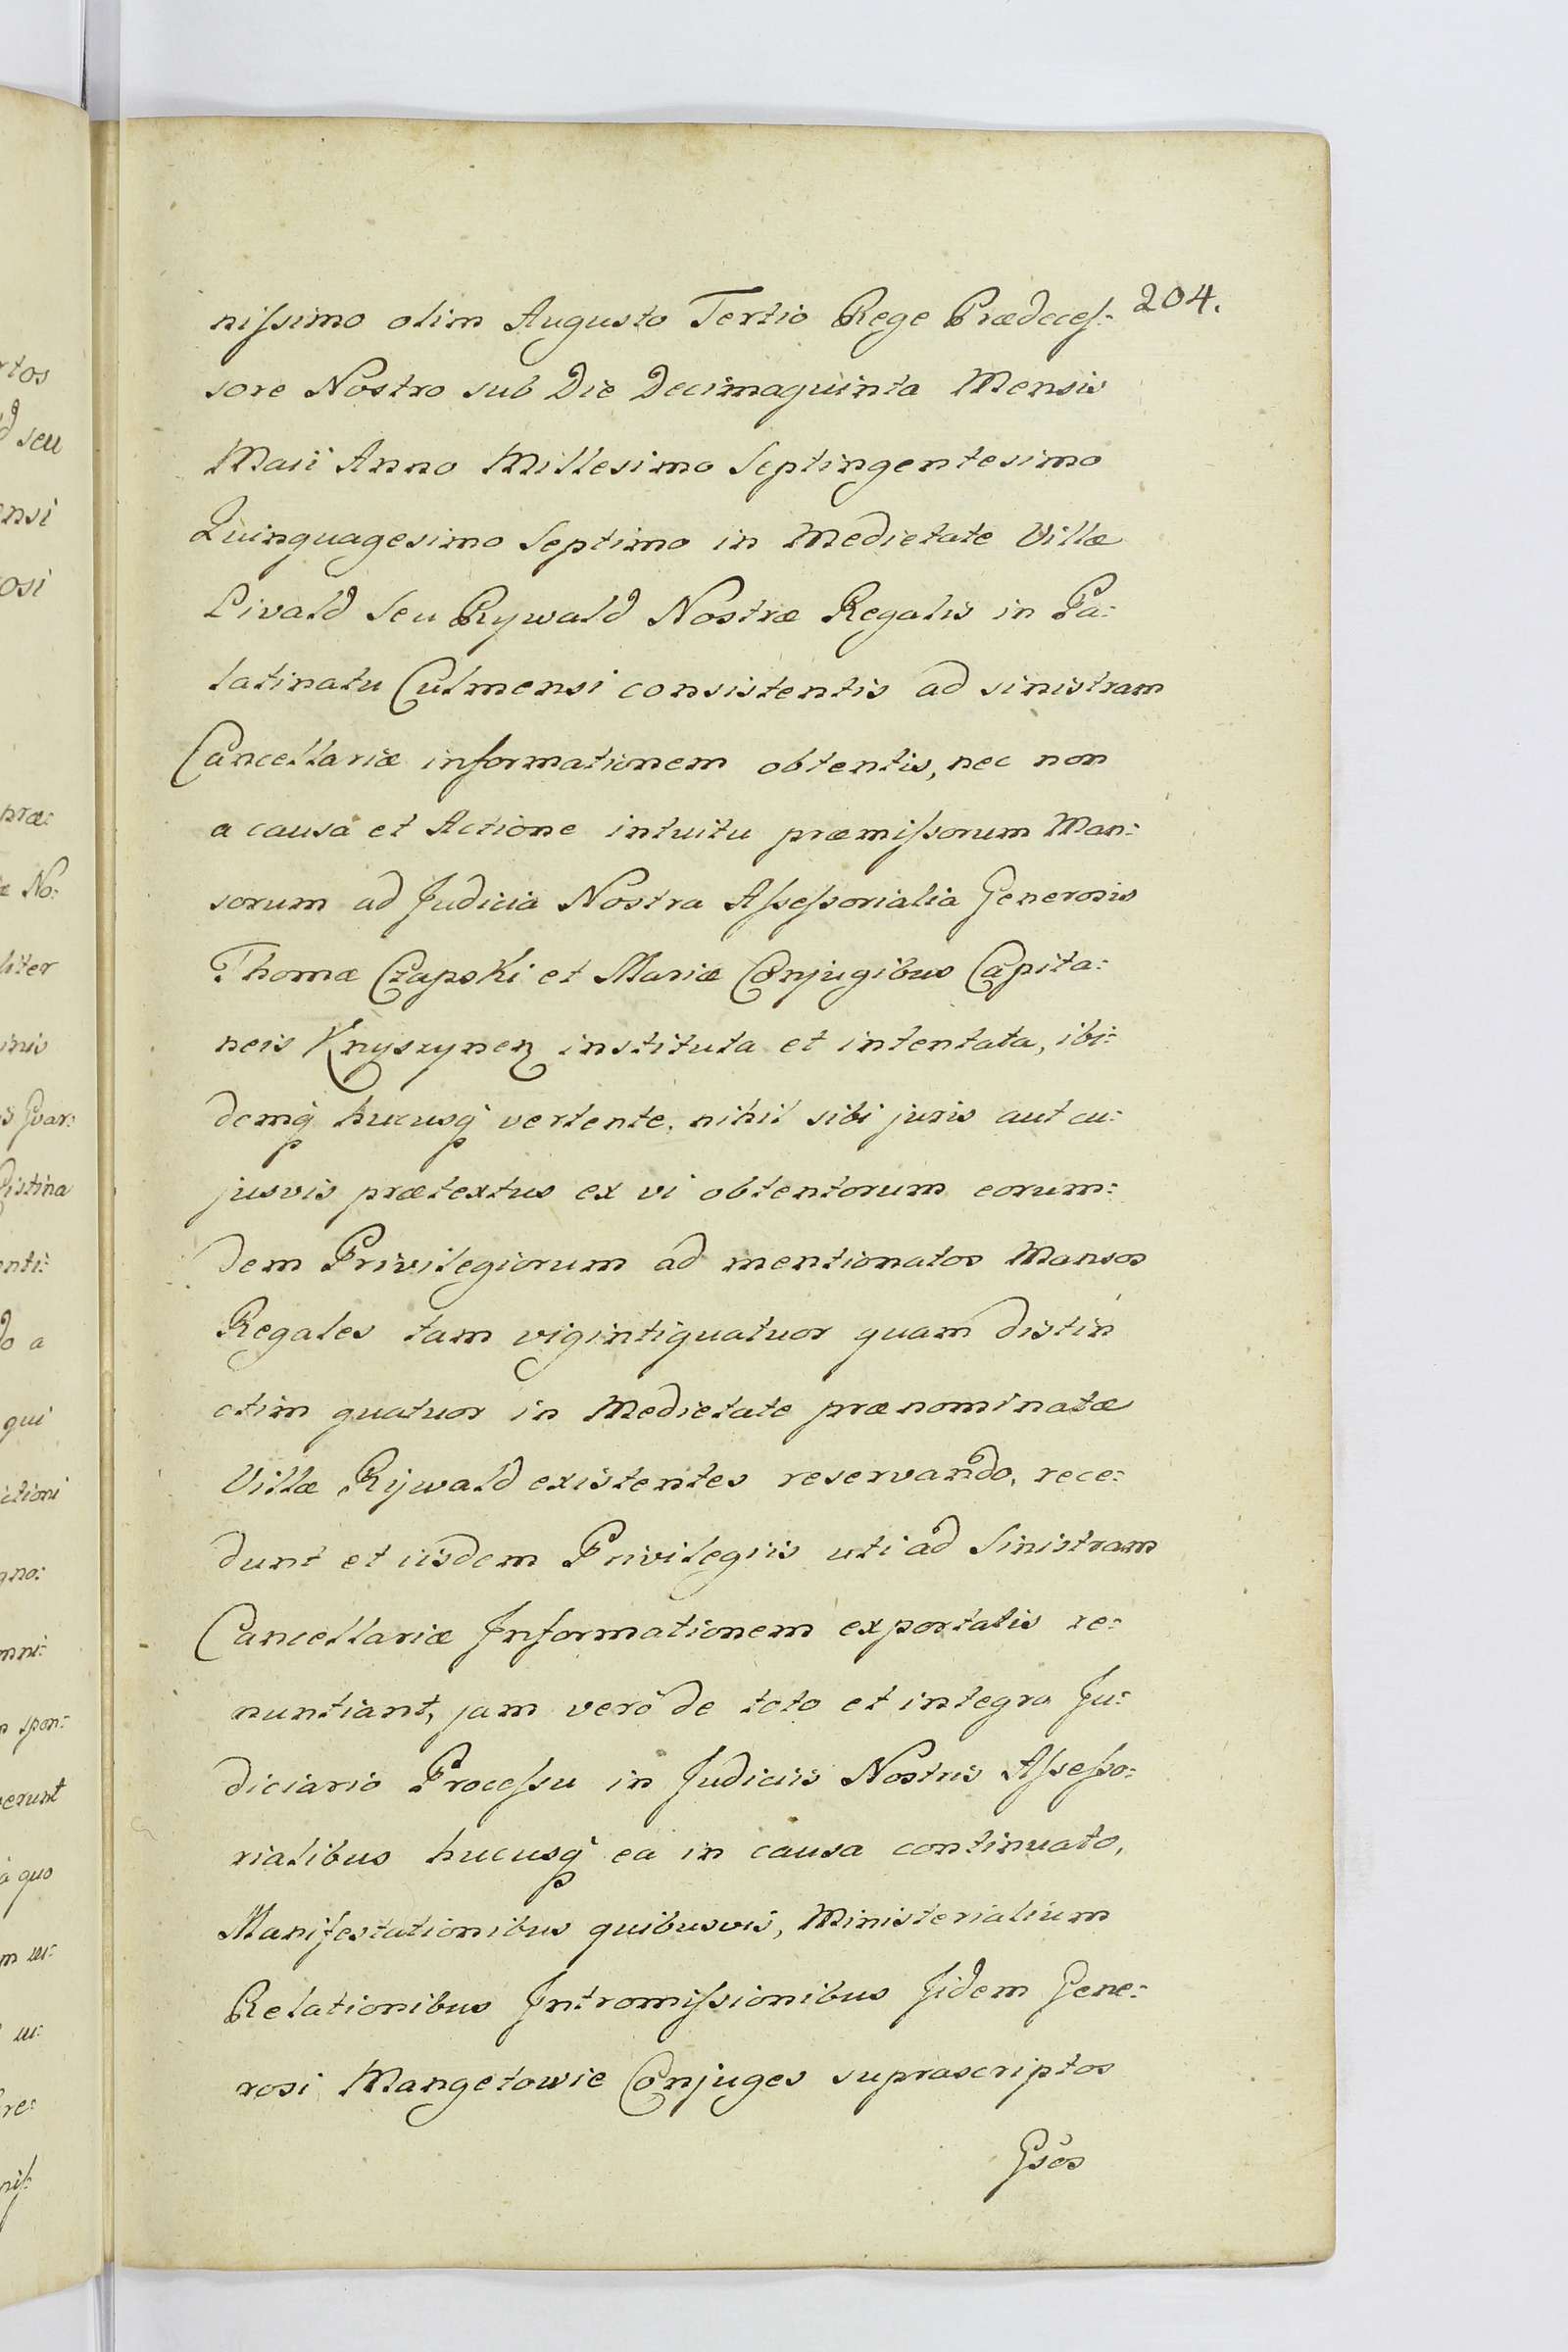 204.
niſsimo olim Augusto Tertio Rege Prædeceſ:
sore Nostro sub Die Decimaquinta Mensis
Maii Anno Millesimo Septingentesimo
Quinquagesimo Septimo in Medietate Villæ
Livald seu Rywald Nostræ Regalis in Pa:
latinatu Culmensi consistentis ad sinistram
Cancellariæ informationem obtentis, nec non
a causa et Actione intuitu præmiſsorum Man:
sorum ad Judicia Nostra Aſseſsorialia Generosis
Thomæ Czapski et Mariæ Conjugibus Capita:
neis Knyszynen instituta et intentata, ibi:
demq hucusq vertente, nihil sibi juris aut cu:
jusvis prætextus ex vi obtentorum eorum:
dem Privilegiorum ad mentionatos Mansos
Regales tam vigintiquatuor quam distin
ctim quatuor in Medietate prænominatæ
Villæ Rywald existentes reservando, rece:
dunt et iisdem Privilegiis uti ad Sinistram
Cancellariæ Informationem exportatis re:
nuntiant, jam verò de toto et integro Ju:
diciario Proceſsu in Judiciis Nostris Aſseſso:
rialibus hucusq ea in causa continuato,
Manifestationibus quibusvis, Ministerialium
Relationibus Intromiſsionibus Jidem Gene:
rosi Mangetowie Conjuges suprascriptos
Gsōs
rtos
seu
ensi
osi
præ:
No:
liter
Gvar:
istina
enti:
do a
qui
ctioni
gno:
mni:
spon:
erunt
à quo
re:
niſ: